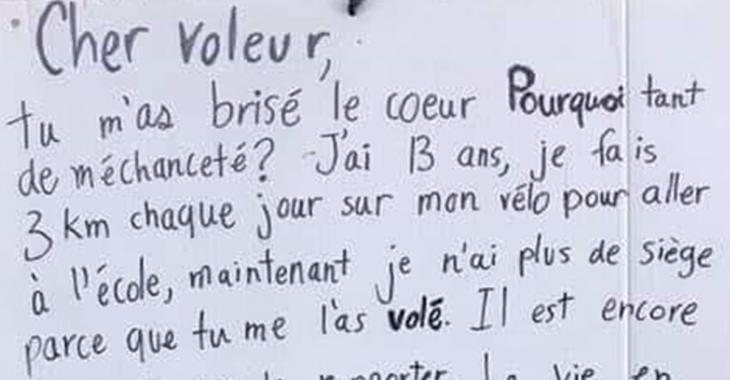 Cher voleur,
tu m'as brisé le coeur Pourquoi tant
de méchanceté? J'ai 13 ans, je fais
3 km chaque jour sur mon vélo pour aller
à l'école, maintenant je n'ai plus de siège
parce que tu me l'as volé. Il est encore
la vie en